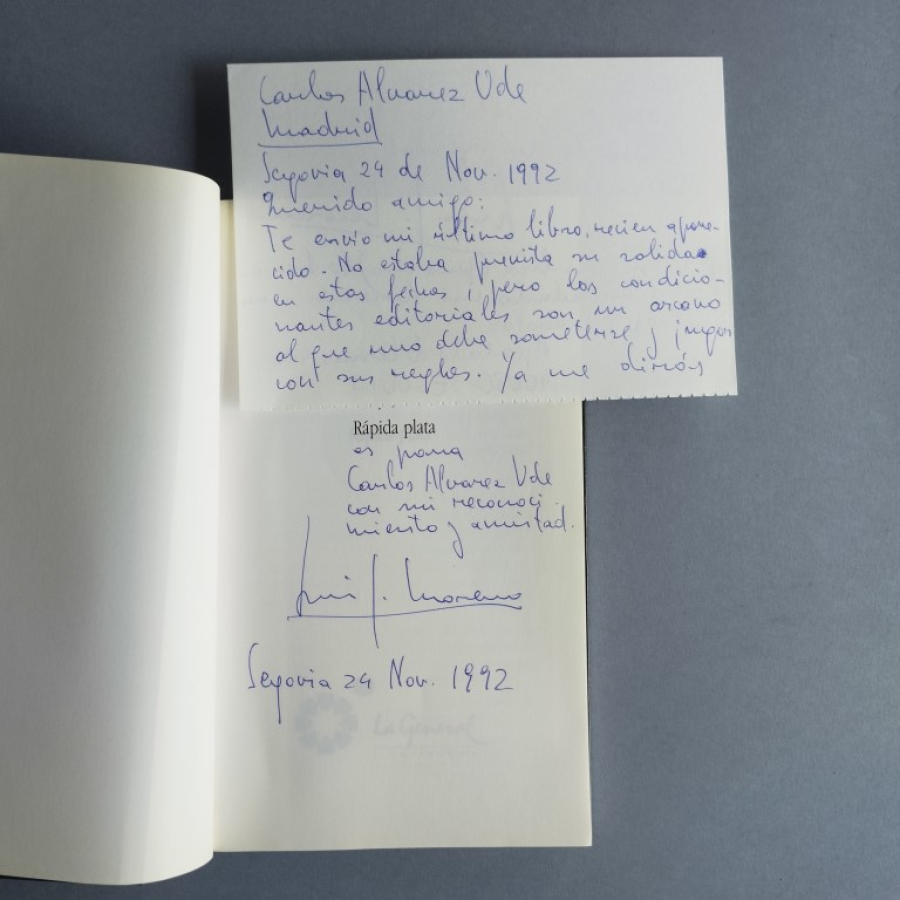 Carlos Alvarez Ude
Madrid
Segovia 24 de Nov. 1992
Querido amigo:
Te envío mi último libro, recien apare-
cido. No estaba prevista su salida
en estas fechas, pero los condicio-
nantes editoriales son un arcano
al que uno debe someterse y jugar
con sus reglas. Ya me dirás
Rápida plata
es para
Carlos Alvarez Ude
con mi reconoci-
miento y amistad.
Luis J. Moreno
Segovia 24 Nov. 1992
La General